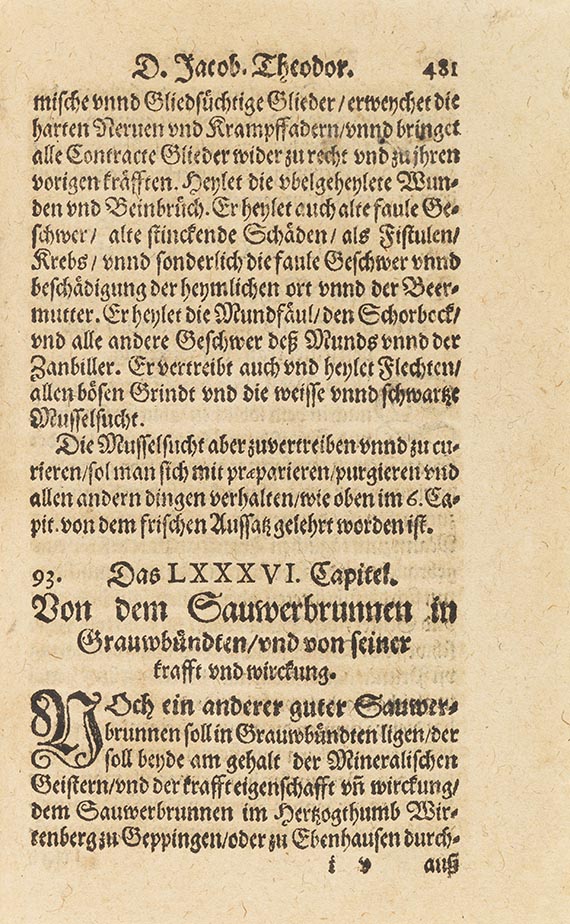 D. Jacob. Theodor. 481
mische vnnd Gliedsüchtige Glieder/erweychet die
harten Neruen vnd Krampffadern/vnnd bringet
alle Contracte Glieder wider zu recht vnd zu jhren
vorigen kräfften. Heylet die vbelgeheylete Wun-
den vnd Beinbrüch. Er heylet auch alte faule Ge-
schwer/ alte stinckende Schäden/ als Fistulen/
Krebs/ vnnd sonderlich die faule Geschwer vnnd
beschädigung der heymlichen ort vnnd der Beer-
mutter. Er heylet die Mundfäul/den Schorbock/
vnd alle andere Geschwer deß Munds vnnd der
Zanbiller. Er vertreibt auch vnd heylet Flechten/
allen bösen Grindt vnd die weisse vnnd schwartze
Musselsucht.
Die Musselsucht aber zuvertreiben vnnd zu cu-
rieren/sol man sich mit præparieren/purgieren vnd
allen andern dingen verhalten/wie oben im 6. Ca-
pit. von dem frischen Aussatz gelehrt worden ist.
93. Das LXXXVI. Capitel.
Von dem Sauwerbrunnen in
Grauwbündten/vnd von seiner
krafft vnd wirckung.
NOch ein anderer guter Sauwer-
brunnen soll in Grauwbündten ligen/der
soll beyde am gehalt der Mineralischen
Geistern/vnd der krafft eigenschafft vñ wirckung/
dem Sauwerbrunnen im Hertzogthumb Wir-
tenberg zu Geppingen/oder zu Ebenhausen durch-
i v auß